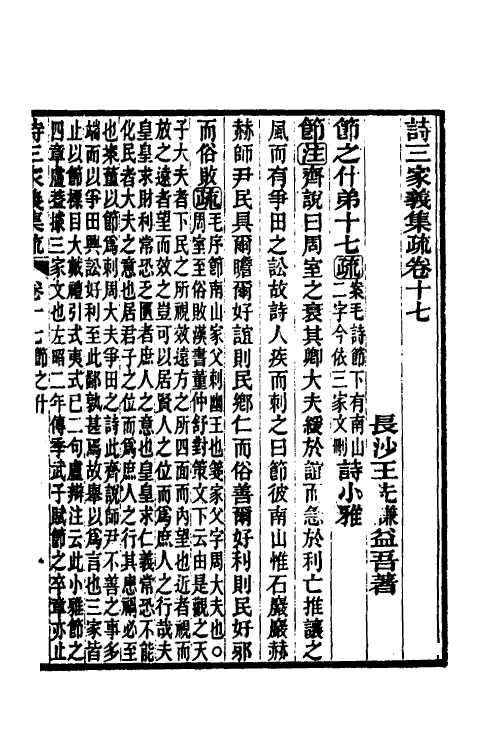 詩三家義集疏卷十七
長沙王先謙益吾著
節之什弟十七疏案毛詩節下有南山二字今依三家文刪詩小雅
節注齊說曰周室之衰其卿大夫緩於誼而急於利亡推讓之
風而有爭田之訟故詩人疾而刺之曰節彼南山惟石巖巖赫
赫師尹民具爾瞻爾好誼則民鄉仁而俗善爾好利則民好邪
而俗敗疏毛序節南山家父刺幽王也箋家父字周大夫也○
周室至俗敗漢書董仲舒對策文下云由是觀之天
子大夫者下民之所視效遠方之所四面而內望也近者視而
放之遠者望而效之豈可以居賢人之位而爲庶人之行哉夫
皇皇求財利常恐乏匱者庶人之意也皇皇求仁義常恐不能
化民者大夫之意也居君子之位而爲庶人之行其患禍必至
也來董以節爲刺周大夫爭田之詩此齊說師尹不善之事多
端而以爭田興訟好利至此鄙孰甚焉故舉以爲言也三家皆
止以節標目大戴禮引式夷式已二句盧辯注云此小雅節之
四章盧葢據三家文也左昭二年傳季武子賦節之卒章亦止
詩三家義集疏 卷十七節之什